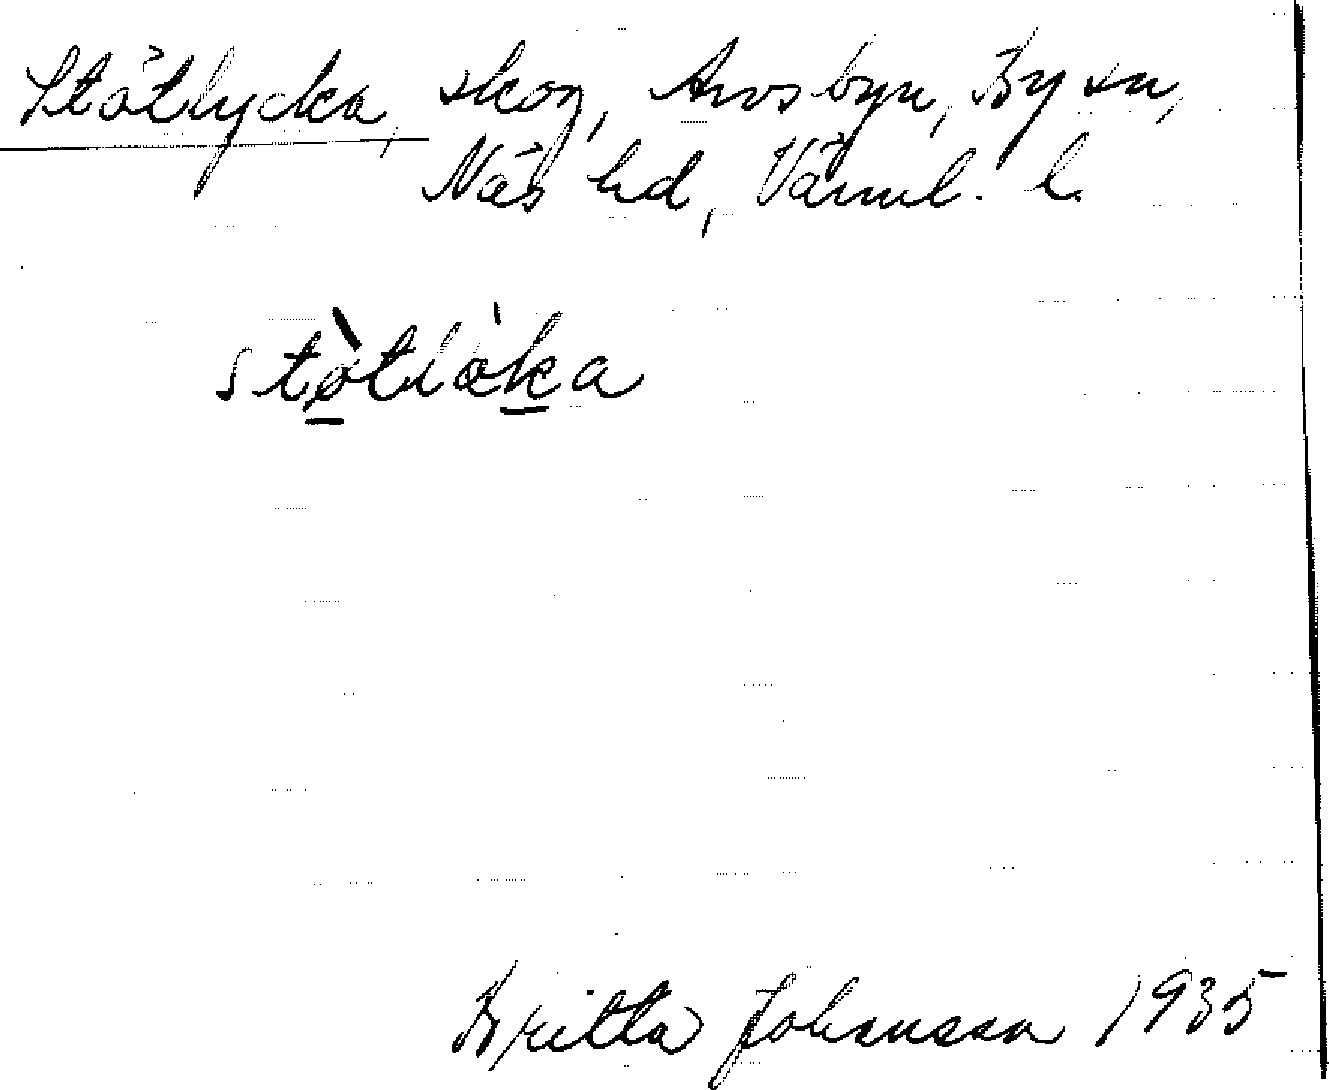 Stötlycka, skog, Avsbyn, By sn,
Näs hd, Värml. l.
stø̀tlǿka
Britta Johansson 1935